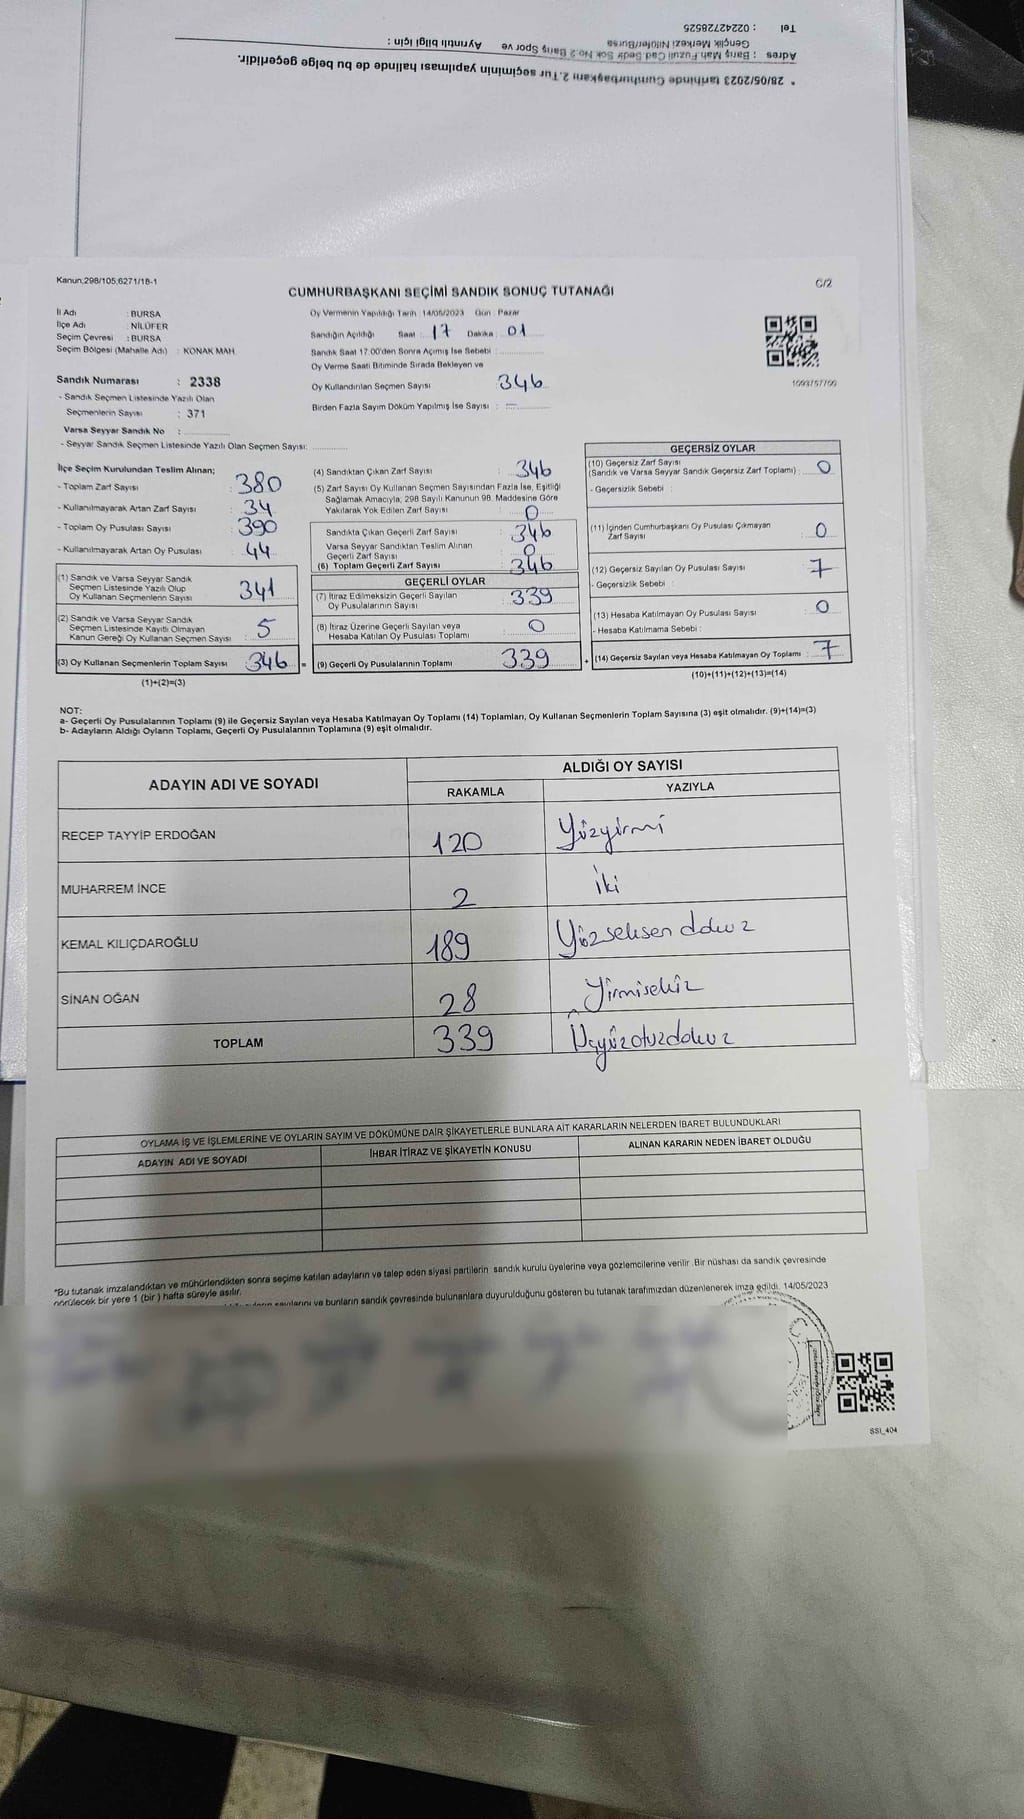 * 28/05/2023 tarihinde Cumhurbaşkanı 2.Tur seçiminin yapılması halinde de bu belge geçerlidir.
Adres : Barış Mah Fuzuli Cad Sedir Sok No:2 Barış Spor ve Ayrıntılı bilgi için :
Gençlik Merkezi Nilüfer/Bursa
Tel : 02242728525
Kanun,298/105,6271/18-1
C/2
CUMHURBAŞKANI SEÇİMİ SANDIK SONUÇ TUTANAĞI
İl Adı : BURSA
İlçe Adı : NİLÜFER
Seçim Çevresi : BURSA
Seçim Bölgesi (Mahalle Adı) : KONAK MAH.
Sandık Numarası : 2338
- Sandık Seçmen Listesinde Yazılı Olan
Seçmenlerin Sayısı : 371
Varsa Seyyar Sandık No :
- Seyyar Sandık Seçmen Listesinde Yazılı Olan Seçmen Sayısı:
Oy Vermenin Yapıldığı Tarih :14/05/2023 Gün : Pazar
Sandığın Açıldığı Saat : 17 Dakika : 01
Sandık Saat 17:00'den Sonra Açılmış İse Sebebi :
Oy Verme Saati Bitiminde Sırada Bekleyen ve
Oy Kullandırılan Seçmen Sayısı : 346
Birden Fazla Sayım Döküm Yapılmış İse Sayısı : =
İlçe Seçim Kurulundan Teslim Alınan;
- Toplam Zarf Sayısı : 380
- Kullanılmayarak Artan Zarf Sayısı : 34
- Toplam Oy Pusulası Sayısı : 390
- Kullanılmayarak Artan Oy Pusulası : 44
(1) Sandık ve Varsa Seyyar Sandık
Seçmen Listesinde Yazılı Olup
Oy Kullanan Seçmenlerin Sayısı : 341
(2) Sandık ve Varsa Seyyar Sandık
Seçmen Listesinde Kayıtlı Olmayan
Kanun Gereği Oy Kullanan Seçmen Sayısı : 5
(3) Oy Kullanan Seçmenlerin Toplam Sayısı : 346 =
(1)+(2)=(3)
(4) Sandıktan Çıkan Zarf Sayısı : 346
(5) Zarf Sayısı Oy Kullanan Seçmen Sayısından Fazla İse, Eşitliği
Sağlamak Amacıyla; 298 Sayılı Kanunun 98. Maddesine Göre
Yakılarak Yok Edilen Zarf Sayısı : 0
Sandıkta Çıkan Geçerli Zarf Sayısı : 346
Varsa Seyyar Sandıktan Teslim Alınan
Geçerli Zarf Sayısı : 0
(6) Toplam Geçerli Zarf Sayısı : 346
GEÇERLİ OYLAR
(7) İtiraz Edilmeksizin Geçerli Sayılan
Oy Pusulalarının Sayısı : 339
(8) İtiraz Üzerine Geçerli Sayılan veya
Hesaba Katılan Oy Pusulası Toplamı : 0
(9) Geçerli Oy Pusulalarının Toplamı : 339 +
GEÇERSİZ OYLAR
(10) Geçersiz Zarf Sayısı
(Sandık ve Varsa Seyyar Sandık Geçersiz Zarf Toplamı) : 0
- Geçersizlik Sebebi :
(11) İçinden Cumhurbaşkanı Oy Pusulası Çıkmayan
Zarf Sayısı : 0
(12) Geçersiz Sayılan Oy Pusulası Sayısı : 7
- Geçersizlik Sebebi :
(13) Hesaba Katılmayan Oy Pusulası Sayısı : 0
- Hesaba Katılmama Sebebi :
(14) Geçersiz Sayılan veya Hesaba Katılmayan Oy Toplamı : 7
(10)+(11)+(12)+(13)=(14)
NOT:
a- Geçerli Oy Pusulalarının Toplamı (9) ile Geçersiz Sayılan veya Hesaba Katılmayan Oy Toplamı (14) Toplamları, Oy Kullanan Seçmenlerin Toplam Sayısına (3) eşit olmalıdır. (9)+(14)=(3)
b- Adayların Aldığı Oyların Toplamı, Geçerli Oy Pusulalarının Toplamına (9) eşit olmalıdır.
ADAYIN ADI VE SOYADI ALDIĞI OY SAYISI
RAKAMLA YAZIYLA
RECEP TAYYİP ERDOĞAN 120 Yüzyirmi
MUHARREM İNCE 2 iki
KEMAL KILIÇDAROĞLU 189 Yüzseksen dokuz
SİNAN OĞAN 28 Yirmisekiz
TOPLAM 339 Üçyüzotuzdokuz
OYLAMA İŞ VE İŞLEMLERİNE VE OYLARIN SAYIM VE DÖKÜMÜNE DAİR ŞİKAYETLERLE BUNLARA AİT KARARLARIN NELERDEN İBARET BULUNDUKLARI
ADAYIN ADI VE SOYADI İHBAR İTİRAZ VE ŞİKAYETİN KONUSU ALINAN KARARIN NEDEN İBARET OLDUĞU
*Bu tutanak imzalandıktan ve mühürlendikten sonra seçime katılan adayların ve talep eden siyasi partilerin sandık kurulu üyelerine veya gözlemcilerine verilir .Bir nüshası da sandık çevresinde
görülecek bir yere 1 (bir ) hafta süreyle asılır.
sayılarını ve bunların sandık çevresinde bulunanlara duyurulduğunu gösteren bu tutanak tarafımızdan düzenlenerek imza edildi. 14/05/2023
SSI_404